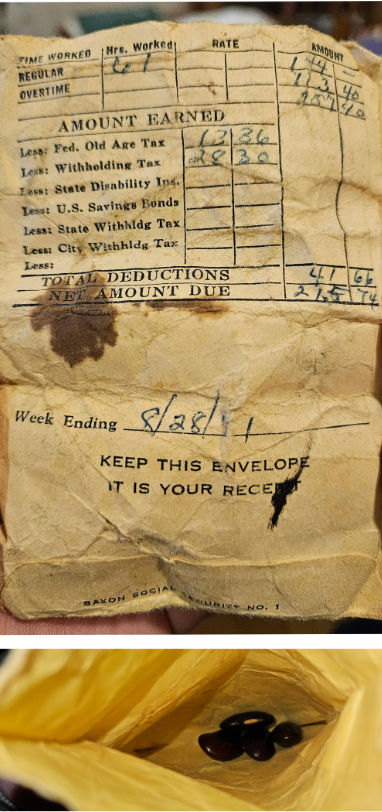 TIME WORKED Hrs. Worked RATE AMOUNT
REGULAR 61 144 —
OVERTIME 113 40
257 40
AMOUNT EARNED
Less: Fed. Old Age Tax 13 36
Less: Withholding Tax 28 30
Less: State Disability Ins.
Less: U.S. Savings Bonds
Less: State Withhldg Tax
Less: City Withhldg Tax
Less:
TOTAL DEDUCTIONS 41 66
NET AMOUNT DUE 215 74
Week Ending 8/28/ 1
KEEP THIS ENVELOPE
IT IS YOUR RECEIPT
BAXON SOCIAL SECURITY NO. 1